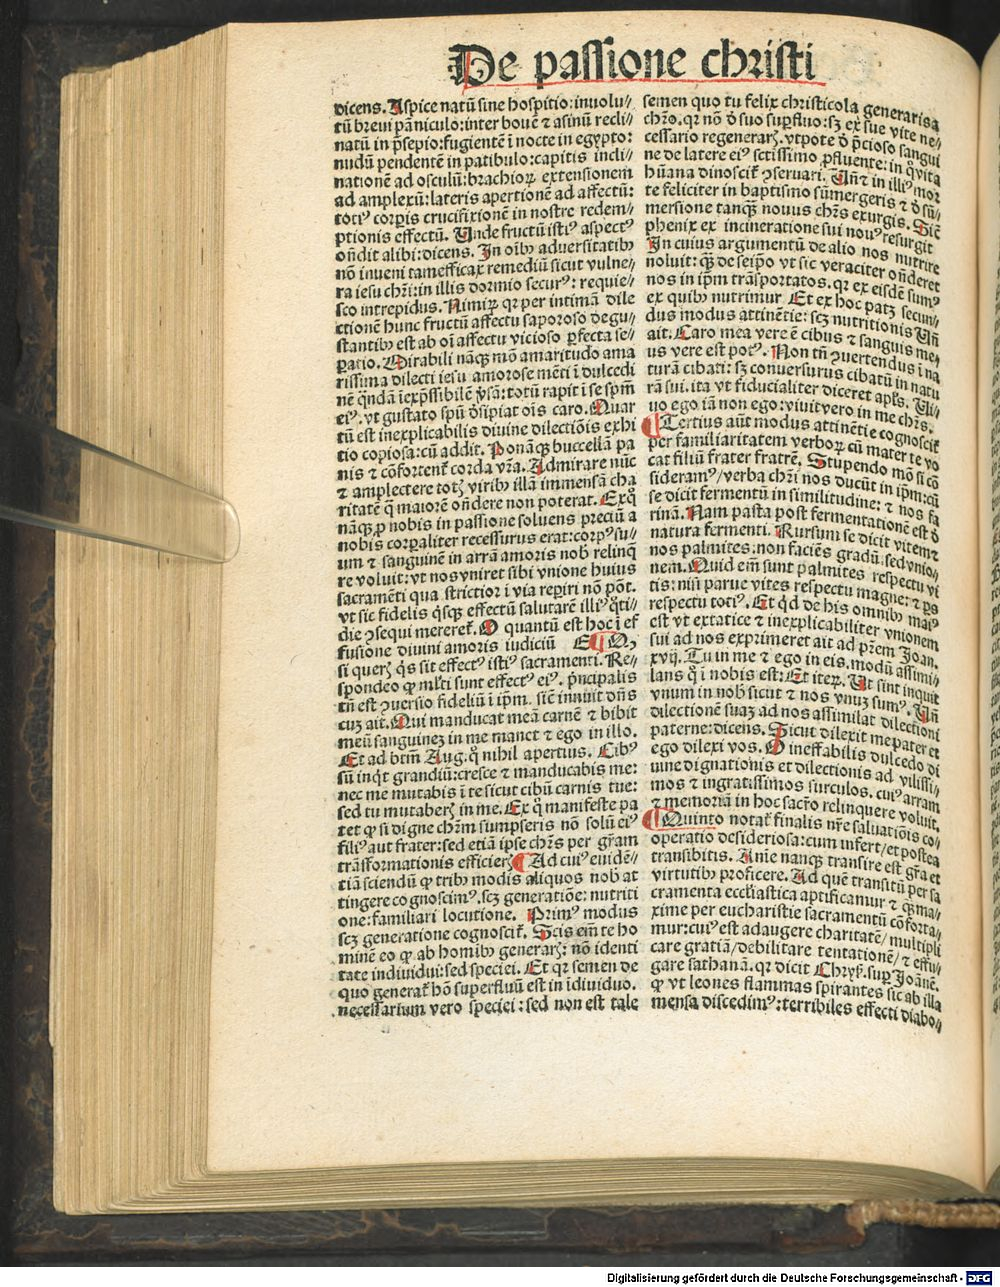 De passione christi
dicens. Aspice natū sine hospitio: inuolu⸗
tū breui pāniculo: inter bouē ⁊ asinū recli⸗
natū in p̄sepio: fugientē ī nocte in egypto:
nudū pendentē in patibulo: capitis incli⸗
nationē ad osculū: brachioꝝ extensionem
ad amplexū: lateris apertionē ad affectū:
totiꝰ corꝑis crucifixionē in nostre redem⸗
ptionis effectū. Unde fructū istiꝰ aspectꝰ
oñdit alibi: dicens. In oīb⁹ aduersitatib⁹
nō inueni tam efficax remediū sicut vulne⸗
ra iesu chr̄i: in illis dormio securꝰ: requie⸗
sco intrepidus. Nimiꝝ qꝛ per intimā dile
ctionē hunc fructū affectu saporoso degu⸗
stantib⁹ est ab oī affectu vicioso ꝑfecta se⸗
ꝑatio. Mirabili nāqꝫ mō amaritudo ama
rissima dilecti iesu amorose mēti ī dulcedi
nē q̄ndā īexp̄ssibilē ꝟsā: totū rapit ī se spm̄
eiꝰ: vt gustato spū d̄sipiat oīs caro. Quar
tū est inexplicabilis diuine dilectiōis exhi
tio copiosa: cū addit. Ponāqꝫ buccellā pa
nis ⁊ cōfortent̄ corda vr̄a. Admirare nūc
⁊ amplectere totꝫ virib⁹ illā immensā cha
ritatē q̄ maiorē oñdere non poterat. Exq̄
nāqꝫ ꝓ nobis in passione soluens preciū a
nobis corꝑaliter recessurus erat: corpꝰ su⸗
um ⁊ sanguinē in arrā amoris nob̄ relinq̄
re voluit: vt nos vniret sibi vnione huius
sacramēti qua strictior ī via reꝑiri nō pōt.
vt sic fidelis q̄sqꝫ effectū salutarē illiꝰ q̄ti⸗
die ꝯsequi mereret̄. O quantū est hoc ī ef
fusione diuini amoris iudiciū
si querꝫ q̄s sit effectꝰ istiꝰ sacramenti. Re⸗
spondeo ꝙ ml̄ti sunt effectꝰ eiꝰ. p̄ncipalis
tn̄ est ꝯuersio fideliū ī ipm̄. sicut innuit dn̄s
cuꝫ ait. Qui manducat meā carnē ⁊ bibit
meū sanguineꝫ in me manet ⁊ ego in illo.
Et ad btm̄ Aug. q̄ nihil apertius. Cibꝰ
sū inq̄t grandiū: cresce ⁊ manducabis me:
nec me mutabis ī te sicut cibū carnis tue:
sed tu mutaberꝫ in me. Ex q̄ manifeste pa
tet ꝙ si digne chr̄m sumpseris nō solū eiꝰ
filiꝰ aut frater: sed etiā ipse chr̄s per gr̄am
trāsformationis efficierꝫ ¶ Ad cuiꝰ euidē⸗
tiā sciendū ꝙ trib⁹ modis aliquos nob̄ at
tingere cognoscimꝰ. scꝫ generatiōe: nutriti
one: familiari locutione. Primꝰ modus
scꝫ generatione cognoscit̄. Scis em̄ te ho
minē eo ꝙ ab homib⁹ generarꝫ: nō identi
tate indiuidui: sed speciei. Et qꝛ semen de
quo generat̄ hō superfluū est in īdiuiduo.
necessarium vero speciei: sed non est tale
semen quo tu felix christicola generaris a
chr̄o. qꝛ nō d̄ suo suꝑfluo: sꝫ ex sue vite ne⸗
cessario regenerarꝫ. vtpote d̄ p̄cioso sangui
ne de latere eiꝰ sctissimo ꝓfluente: in q̄ vita
hūana dinoscit̄ ꝯseruari. Un̄ ⁊ in illiꝰ mor
te feliciter in baptismo sūmergeris ⁊ d̄ sū⸗
mersione tanqꝫ nouus chr̄s exurgis. Sicut
phenix ex incineratione sui nouꝰ resurgit
In cuius argumentū de alio nos nutrire
noluit: qꝫ de seipō vt sic veraciter oñderet
nos in ipm̄ trāsportatos. qꝛ ex eisdē sumꝰ
ex quib⁹ nutrimur Et ex hoc patꝫ secun⸗
dus modus attinētie: scꝫ nutritionis Un̄
ait. Caro mea vere ē cibus ⁊ sanguis me⸗
us vere est potꝰ. Non tn̄ ꝯuertendus ī na
turā cibati: sꝫ conuersurus cibatū in natu
rā sui. ita vt fiducialiter diceret apl̄s. Ui⸗
uo ego iā non ego: viuit vero in me chr̄s.
¶ Tertius aūt modus attinētie cognoscit̄
per familiaritatem verboꝝ cū mater te vo
cat filiū frater fratrē. Stupendo mō si cō
sideramꝰ/ verba chr̄i nos ducūt in ipm̄: cū
se dicit fermentū in similitudine: ⁊ nos fa
rinā. Nam pasta post fermentationē est d̄
natura fermenti. Rursum se dicit vitem ⁊
nos palmites: non faciēs gradū: sed vnio⸗
nem. Quid em̄ sunt palmites respectu vi
tis: nisi parue vites respectu magne: ⁊ ꝑs
respectu totiꝰ. Et q̇d de his omnib⁹ maiꝰ
est vt extatice ⁊ inexplicabiliter vnionem
sui ad nos exprimeret ait ad pr̄em Joan.
xvij. Tu in me ⁊ ego in eis. modū assimi⸗
lans q̄ ī nobis est: Et iteꝝ. Ut sint inquit
vnum in nob̄ sicut ⁊ nos vnuꝫ sumꝰ. Un̄
dilectionē suaꝫ ad nos assimilat dilectioni
paterne: dicens. Sicut dilexit me pater et
ego dilexi vos. O ineffabilis dulcedo di
uine dignationis et dilectionis ad vilissi⸗
mos ⁊ ingratissimos surculos. cuiꝰ arram
⁊ memoriā in hoc sacr̄o relinquere voluit.
¶ Quinto notat̄ finalis nr̄e saluatiōis co⸗
operatio desideriosa: cum infert/ et postea
transibitis. Anīe nanqꝫ transire est gr̄a et
virtutib⁹ proficere. Ad quē transitū per sa
cramenta eccl̄iastica aptificamur ⁊ qꝫ ma⸗
xime per eucharistie sacramentū cōforta⸗
mur: cuiꝰ est adaugere charitatē/ multipli
care gratiā/ debilitare tentationē/ ⁊ effu⸗
gare sathanā. qꝛ dicit Chryſ. suꝑ Joānē.
ꝙ vt leones flammas spirantes sic ab illa
mensa discedimꝰ: terribiles effecti diabo⸗
Digitalisierung gefördert durch die Deutsche Forschungsgemeinschaft - DFG